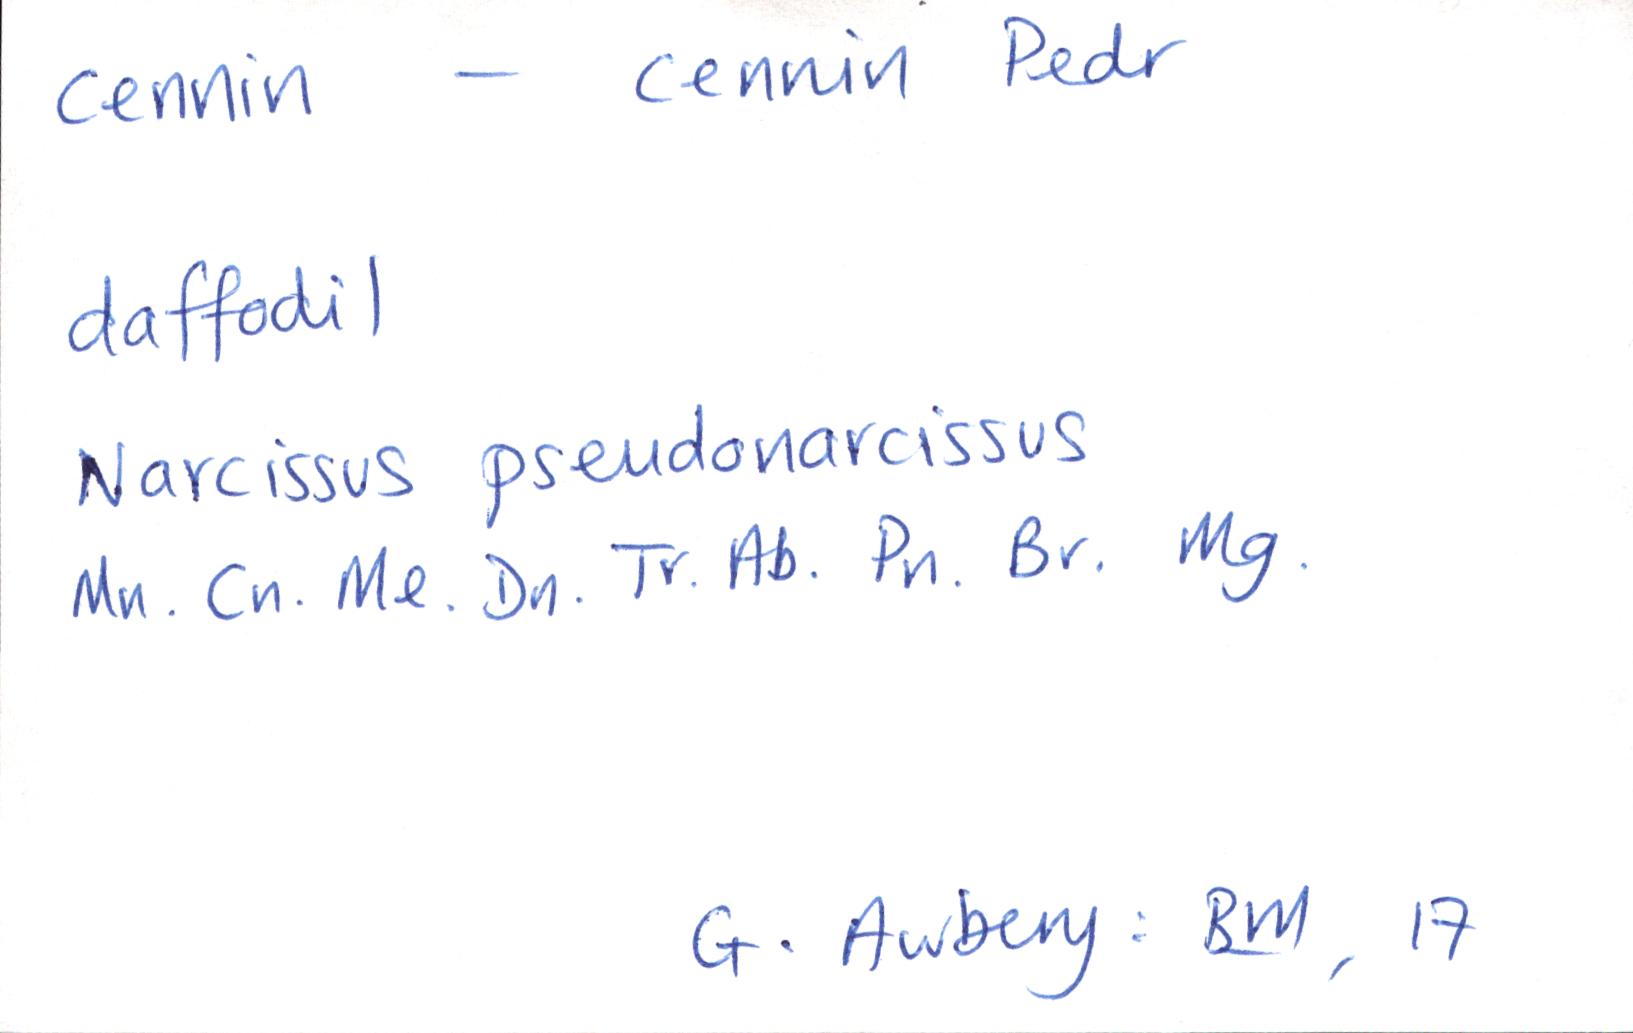 cennin — cennin Pedr
daffodil
Narcissus pseudonarcissus
Mn. Cn. Me. Dn. Tr. Ab. Pn. Br. Mg.
G. Awbery: BM, 17